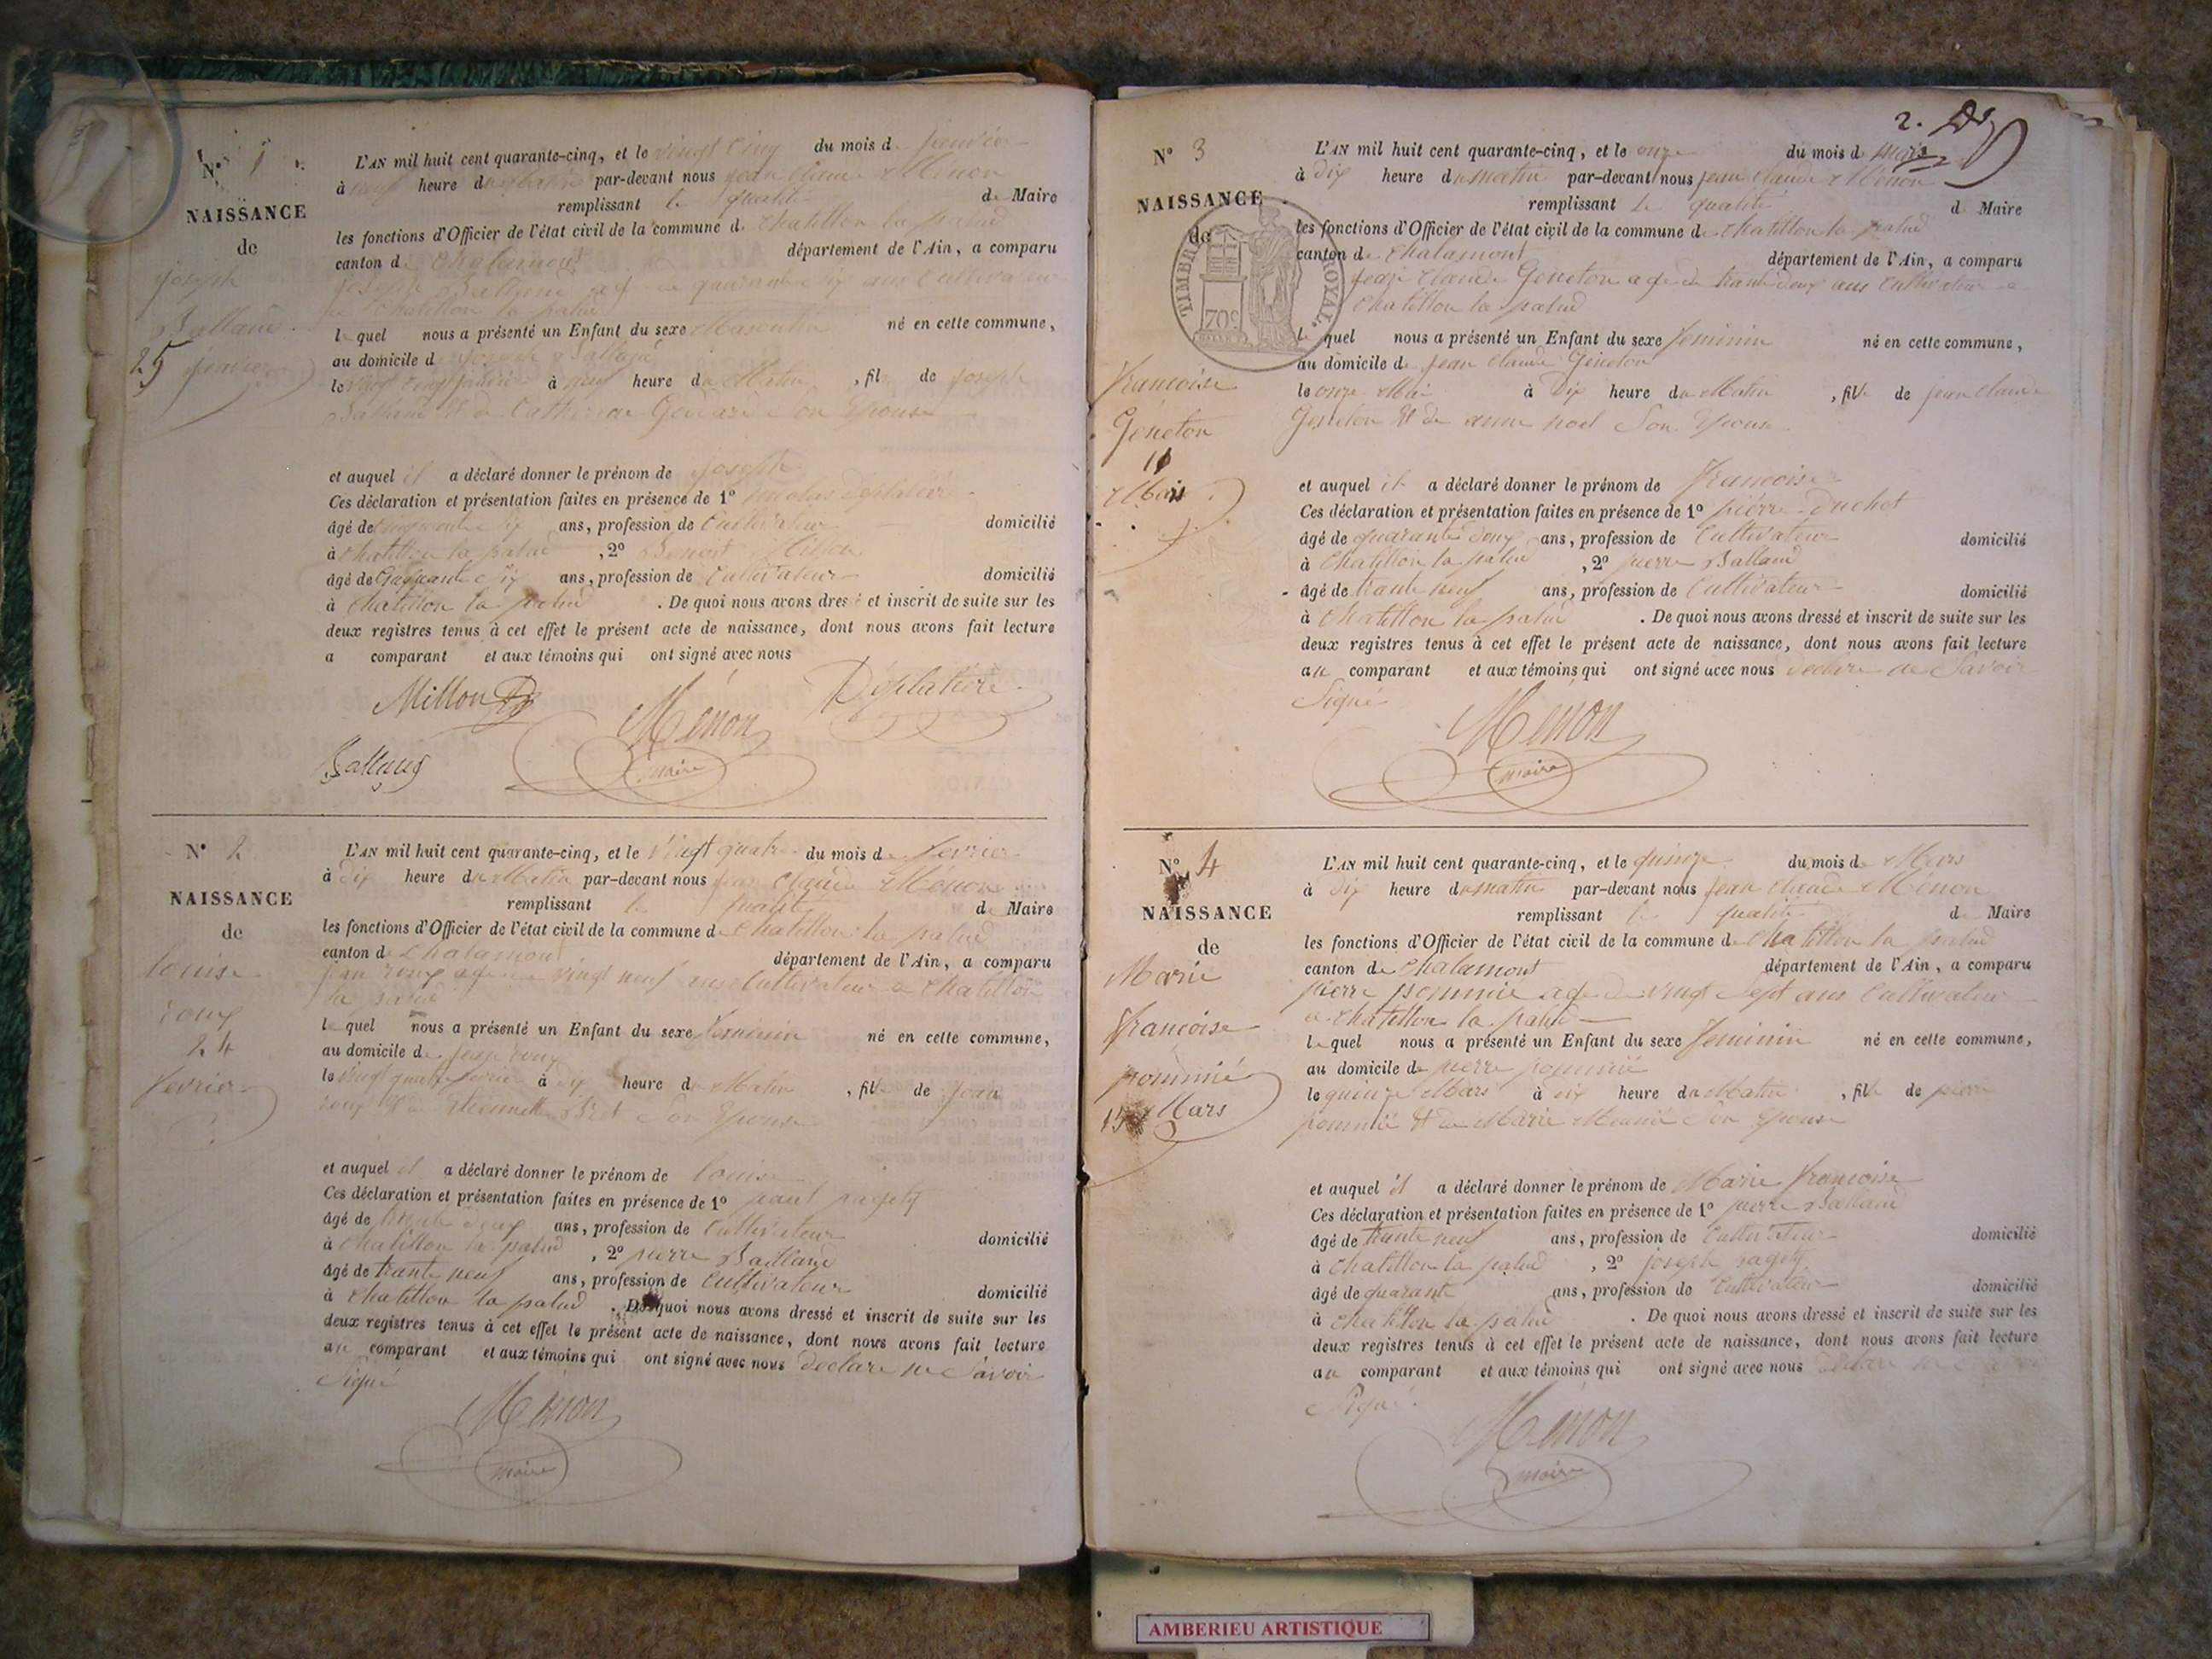 N° 1
NAISSANCE
de
joseph
Balland
25 janvier
L'AN mil huit cent quarante-cinq, et le vingt cinq du mois de janvier
à neuf heure du matin par-devant nous jean claude Ménon
remplissant la qualité de Maire
les fonctions d'Officier de l'état civil de la commune de chatillon la palud
canton de chalamont département de l'Ain, a comparu
joseph Balland agé de quarante six ans Cultivateur
a chatillon la palud
lequel nous a présenté un Enfant du sexe Masculin né en cette commune,
au domicile de joseph Balland
le vingt cinq janvier à neuf heure du Matin, fil de joseph
Balland & de Catherine son Epouse
et auquel il a déclaré donner le prénom de joseph
Ces déclaration et présentation faites en présence de 1° nicolas
âgé de ans, profession de Cultivateur domicilié
à chatillon la palud, 2° Benoit Millon
âgé de Cinquante six ans, profession de Cultivateur domicilié
à chatillon la palud. De quoi nous avons dressé et inscrit de suite sur les
deux registres tenus à cet effet le présent acte de naissance, dont nous avons fait lecture
a comparant et aux témoins qui ont signé avec nous
Millon Ménon Déplatière
Balland maire
N° 2
NAISSANCE
de
louise
roux
24
fevrier
L'AN mil huit cent quarante-cinq, et le vingt quatre du mois de fevrier
à dix heure du Matin par-devant nous jean claude Ménon
remplissant la qualité de Maire
les fonctions d'Officier de l'état civil de la commune de chatillon la palud
canton de chalamont département de l'Ain, a comparu
jean roux agé de vingt neuf ans Cultivateur a chatillon
la palud
lequel nous a présenté un Enfant du sexe feminin né en cette commune,
au domicile de jean roux
le vingt quatre fevrier à dix heure du Matin, fille de jean
roux & de Etiennette son Epouse
et auquel il a déclaré donner le prénom de louise
Ces déclaration et présentation faites en présence de 1° paul pagety
âgé de ans, profession de Cultivateur domicilié
à chatillon la palud, 2° pierre Balland
âgé de trante neuf ans, profession de Cultivateur domicilié
à chatillon la palud. De quoi nous avons dressé et inscrit de suite sur les
deux registres tenus à cet effet le présent acte de naissance, dont nous avons fait lecture
au comparant et aux témoins qui ont signé avec nous declare ne Savoir
Signé
Ménon
maire
2.
N° 3
NAISSANCE
de
TIMBRE ROYAL
70c
francoise
Geneton
11
Mars
L'AN mil huit cent quarante-cinq, et le onze du mois de mars
à dix heure du matin par-devant nous jean claude Ménon
remplissant la qualité de Maire
les fonctions d'Officier de l'état civil de la commune de chatillon la palud
canton de chalamont département de l'Ain, a comparu
jean claude Geneton agé de trante deux ans Cultivateur a
chatillon la palud
lequel nous a présenté un Enfant du sexe feminin né en cette commune,
au domicile de jean claude Geneton
le onze à dix heure du Matin, fille de jean claude
Geneton & de anne noel Son Epouse
et auquel il a déclaré donner le prénom de francoise
Ces déclaration et présentation faites en présence de 1° pierre Duchet
âgé de quarante deux ans, profession de Cultivateur domicilié
à chatillon la palud, 2° pierre Balland
âgé de trante neuf ans, profession de Cultivateur domicilié
à chatillon la palud. De quoi nous avons dressé et inscrit de suite sur les
deux registres tenus à cet effet le présent acte de naissance, dont nous avons fait lecture
au comparant et aux témoins qui ont signé avec nous declare ne Savoir
Signé
Ménon
maire
N° 4
NAISSANCE
de
Marie
francoise
pommié
15 Mars
L'AN mil huit cent quarante-cinq, et le quinze du mois de Mars
à dix heure du matin par-devant nous jean claude Ménon
remplissant la qualité de Maire
les fonctions d'Officier de l'état civil de la commune de chatillon la palud
canton de chalamont département de l'Ain, a comparu
pierre pommié agé de vingt Sept ans Cultivateur
a chatillon la palud
lequel nous a présenté un Enfant du sexe feminin né en cette commune,
au domicile de pierre pommié
le quinze Mars à dix heure du Matin, fille de pierre
pommié & de Marie son Epouse
et auquel il a déclaré donner le prénom de Marie francoise
Ces déclaration et présentation faites en présence de 1° pierre Balland
âgé de trante neuf ans, profession de Cultivateur domicilié
à chatillon la palud, 2° joseph pagety
âgé de quarante ans, profession de Cultivateur domicilié
à chatillon la palud. De quoi nous avons dressé et inscrit de suite sur les
deux registres tenus à cet effet le présent acte de naissance, dont nous avons fait lecture
au comparant et aux témoins qui ont signé avec nous declare ne Savoir
Signé.
Ménon
maire
AMBERIEU ARTISTIQUE